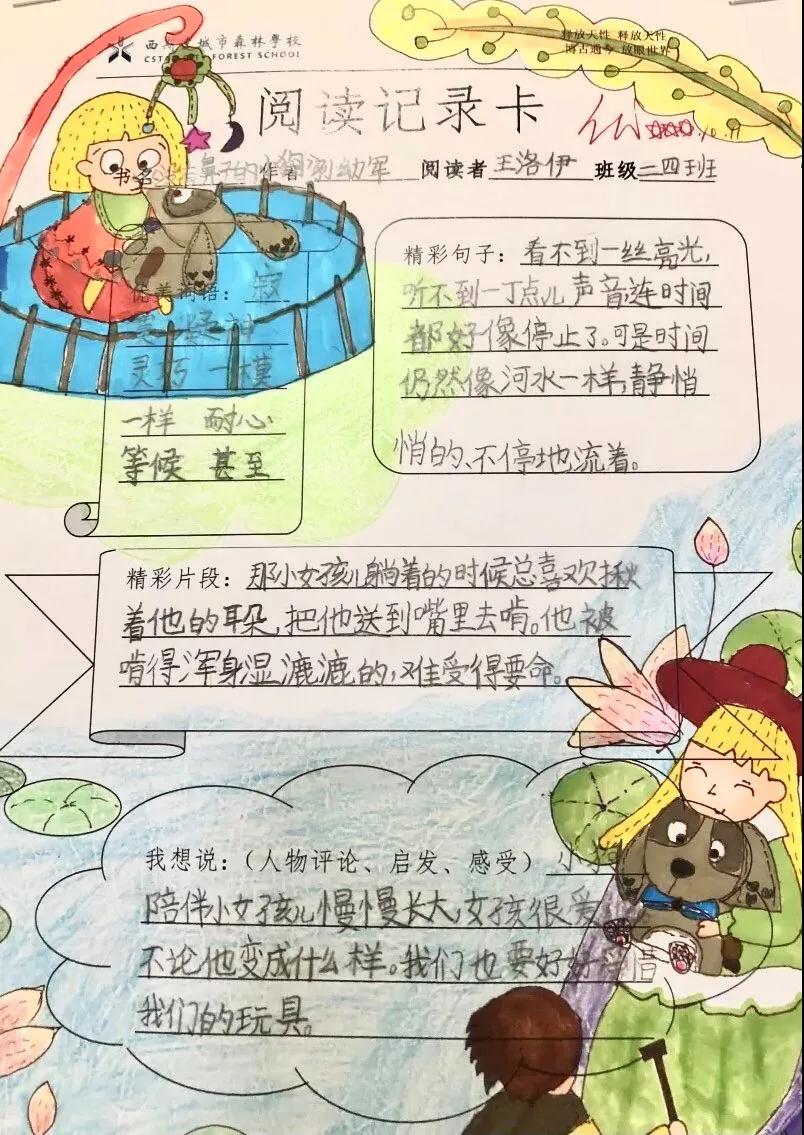 城市森林學校
FOREST SCHOOL
释放天性 释放天性
博古通今 放眼世界
阅读记录卡
书名 鼻子的小狗 作者 刘幼军 阅读者 王洛伊 班级 二四班
精彩句子：看不到一丝亮光，
听不到一丁点儿声音，连时间
都好像停止了。可是时间
仍然像河水一样，静悄
悄的、不停地流着。
优美词语：寂
灵巧 一模
一样 耐心
等候 甚至
精彩片段：那小女孩儿躺着的时候总喜欢揪
着他的耳朵，把他送到嘴里去啃。他被
啃得浑身湿漉漉的，难受得要命。
我想说：（人物评论、启发、感受）小
陪伴小女孩儿慢慢长大，女孩很爱
不论他变成什么样。我们也要好好惜
我们的玩具。